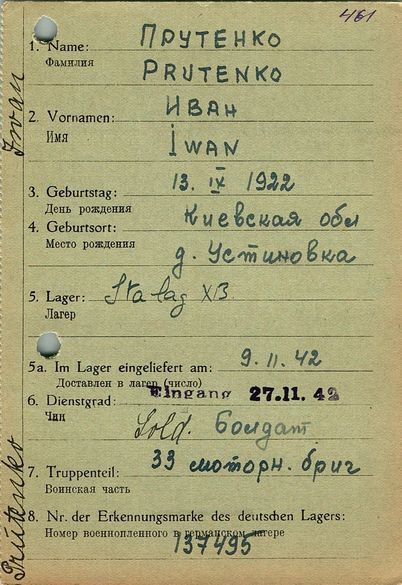 461
1. Name: ПРУТЕНКО
Фамилия PRUTENKO
2. Vornamen: ИВАН
Имя IWAN
3. Geburtstag: 13. IX 1922
День рождения
4. Geburtsort: Киевская обл
Место рождения
д. Устиновка
5. Lager: Stalag XB
Лагер
5a. Im Lager eingeliefert am: 9. 11. 42
Доставлен в лагер (число)
Eingang 27.11. 42
6. Dienstgrad:
Чин Sold. Солдат
7. Truppenteil: 33 моторн. бриг
Воинская часть
8. Nr. der Erkennungsmarke des deutschen Lagers:
Номер военнопленного в германском лагере
137495
Prutenko Iwan